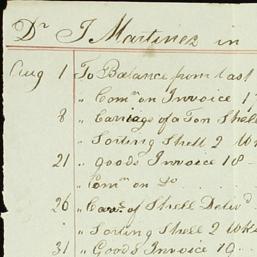 Dr J Martinez in
Aug 1 To Balance from last
" Comn on Invoice 17
8 " Carriage of a Ton Shell
" Sorting Shell 2 W
21 " Goods Invoice 18
" Comn on Do
26 " Carr. of Shell Delivd
" Sorting Shell 2 Wks
31 " Goods Invoice 19